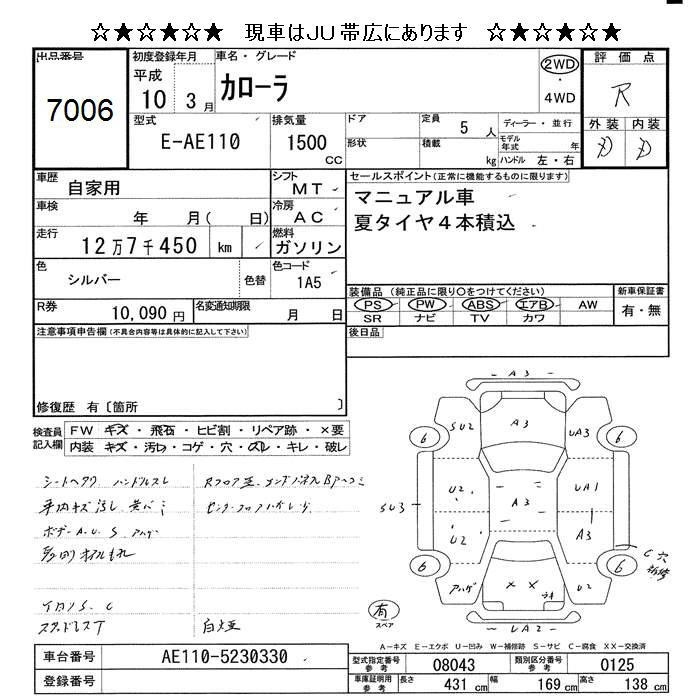 ☆★☆★☆★ 現車はJU帯広にあります ☆★☆★☆★
出品番号
7006
初度登録年月
平成
10 3月
車名・グレード
カローラ
2WD
4WD
評価点
R
外装 内装
D D
型式
E-AE110
排気量
1500
CC
ドア
形状
定員
5人
積載
kg
ディーラー・並行
モデル年式 年
ハンドル 左・右
車歴
自家用
シフト
MT
車検
年 月( 日)
冷房
AC
走行
12万7千450 km
燃料
ガソリン
色
シルバー
色替
色コード
1A5
R券
10,090円
名変通知期限
月 日
セールスポイント(正常に機能するものに限ります)
マニュアル車
夏タイヤ4本積込
装備品(純正品に限り○をつけてください)
PS PW ABS エアB AW
SR ナビ TV カワ
新車保証書
有・無
後日品
注意事項申告欄(不具合内容等は具体的に記入して下さい)
修復歴 有〔箇所 〕
検査員記入欄
FW キズ・飛石・ヒビ割・リペア跡・×要
内装 キズ・汚レ・コゲ・穴・スレ・キレ・破レ
シートヘタリ ハンドルスレ
ボデーA.U.S
A3
SU2
A3
UA3
6
6
U2
A3
UA1
SU3
U2
A3
6
6
アハゲ
××
U2
C穴
UA2
有
スペア
A-キズ E-エクボ U-凹み W-補修跡 S-サビ C-腐食 XX-交換済
車台番号
AE110-5230330
登録番号
型式指定番号 参考
08043
類別区分番号 参考
0125
車庫証明用 参考
長さ 431cm 幅 169cm 高さ 138cm